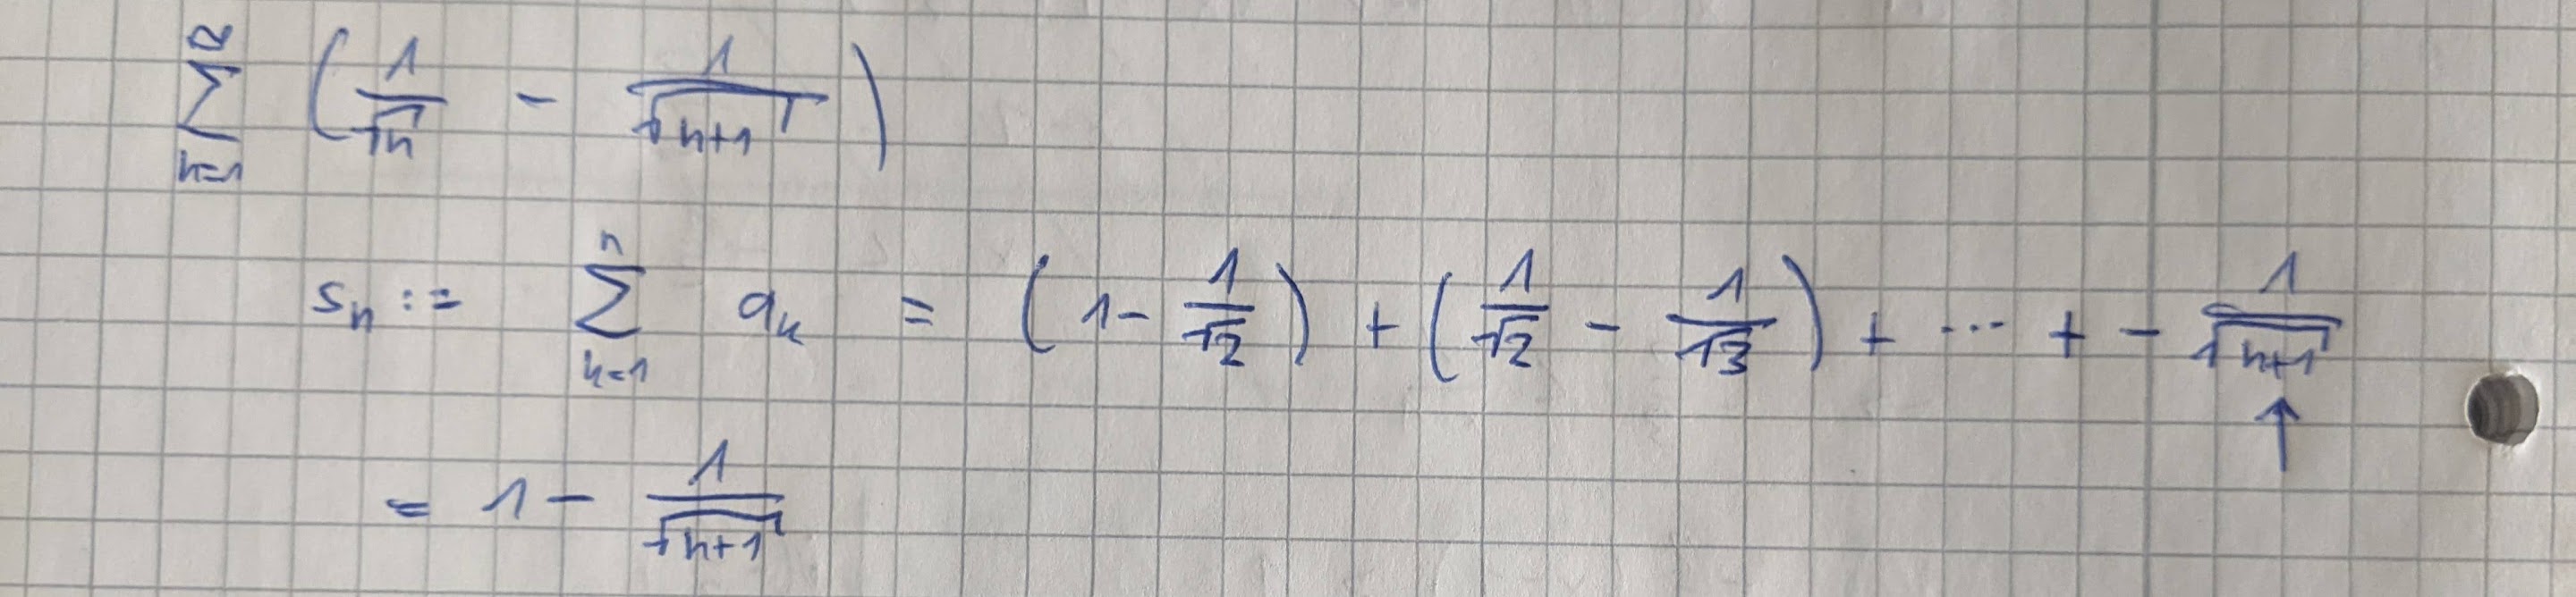 ∑_{n=1}^{∞} (1/√n - 1/√(n+1))
s_n := ∑_{k=1}^{n} a_k = (1 - 1/√2) + (1/√2 - 1/√3) + ... + - 1/√(n+1)
↑
= 1 - 1/√(n+1)